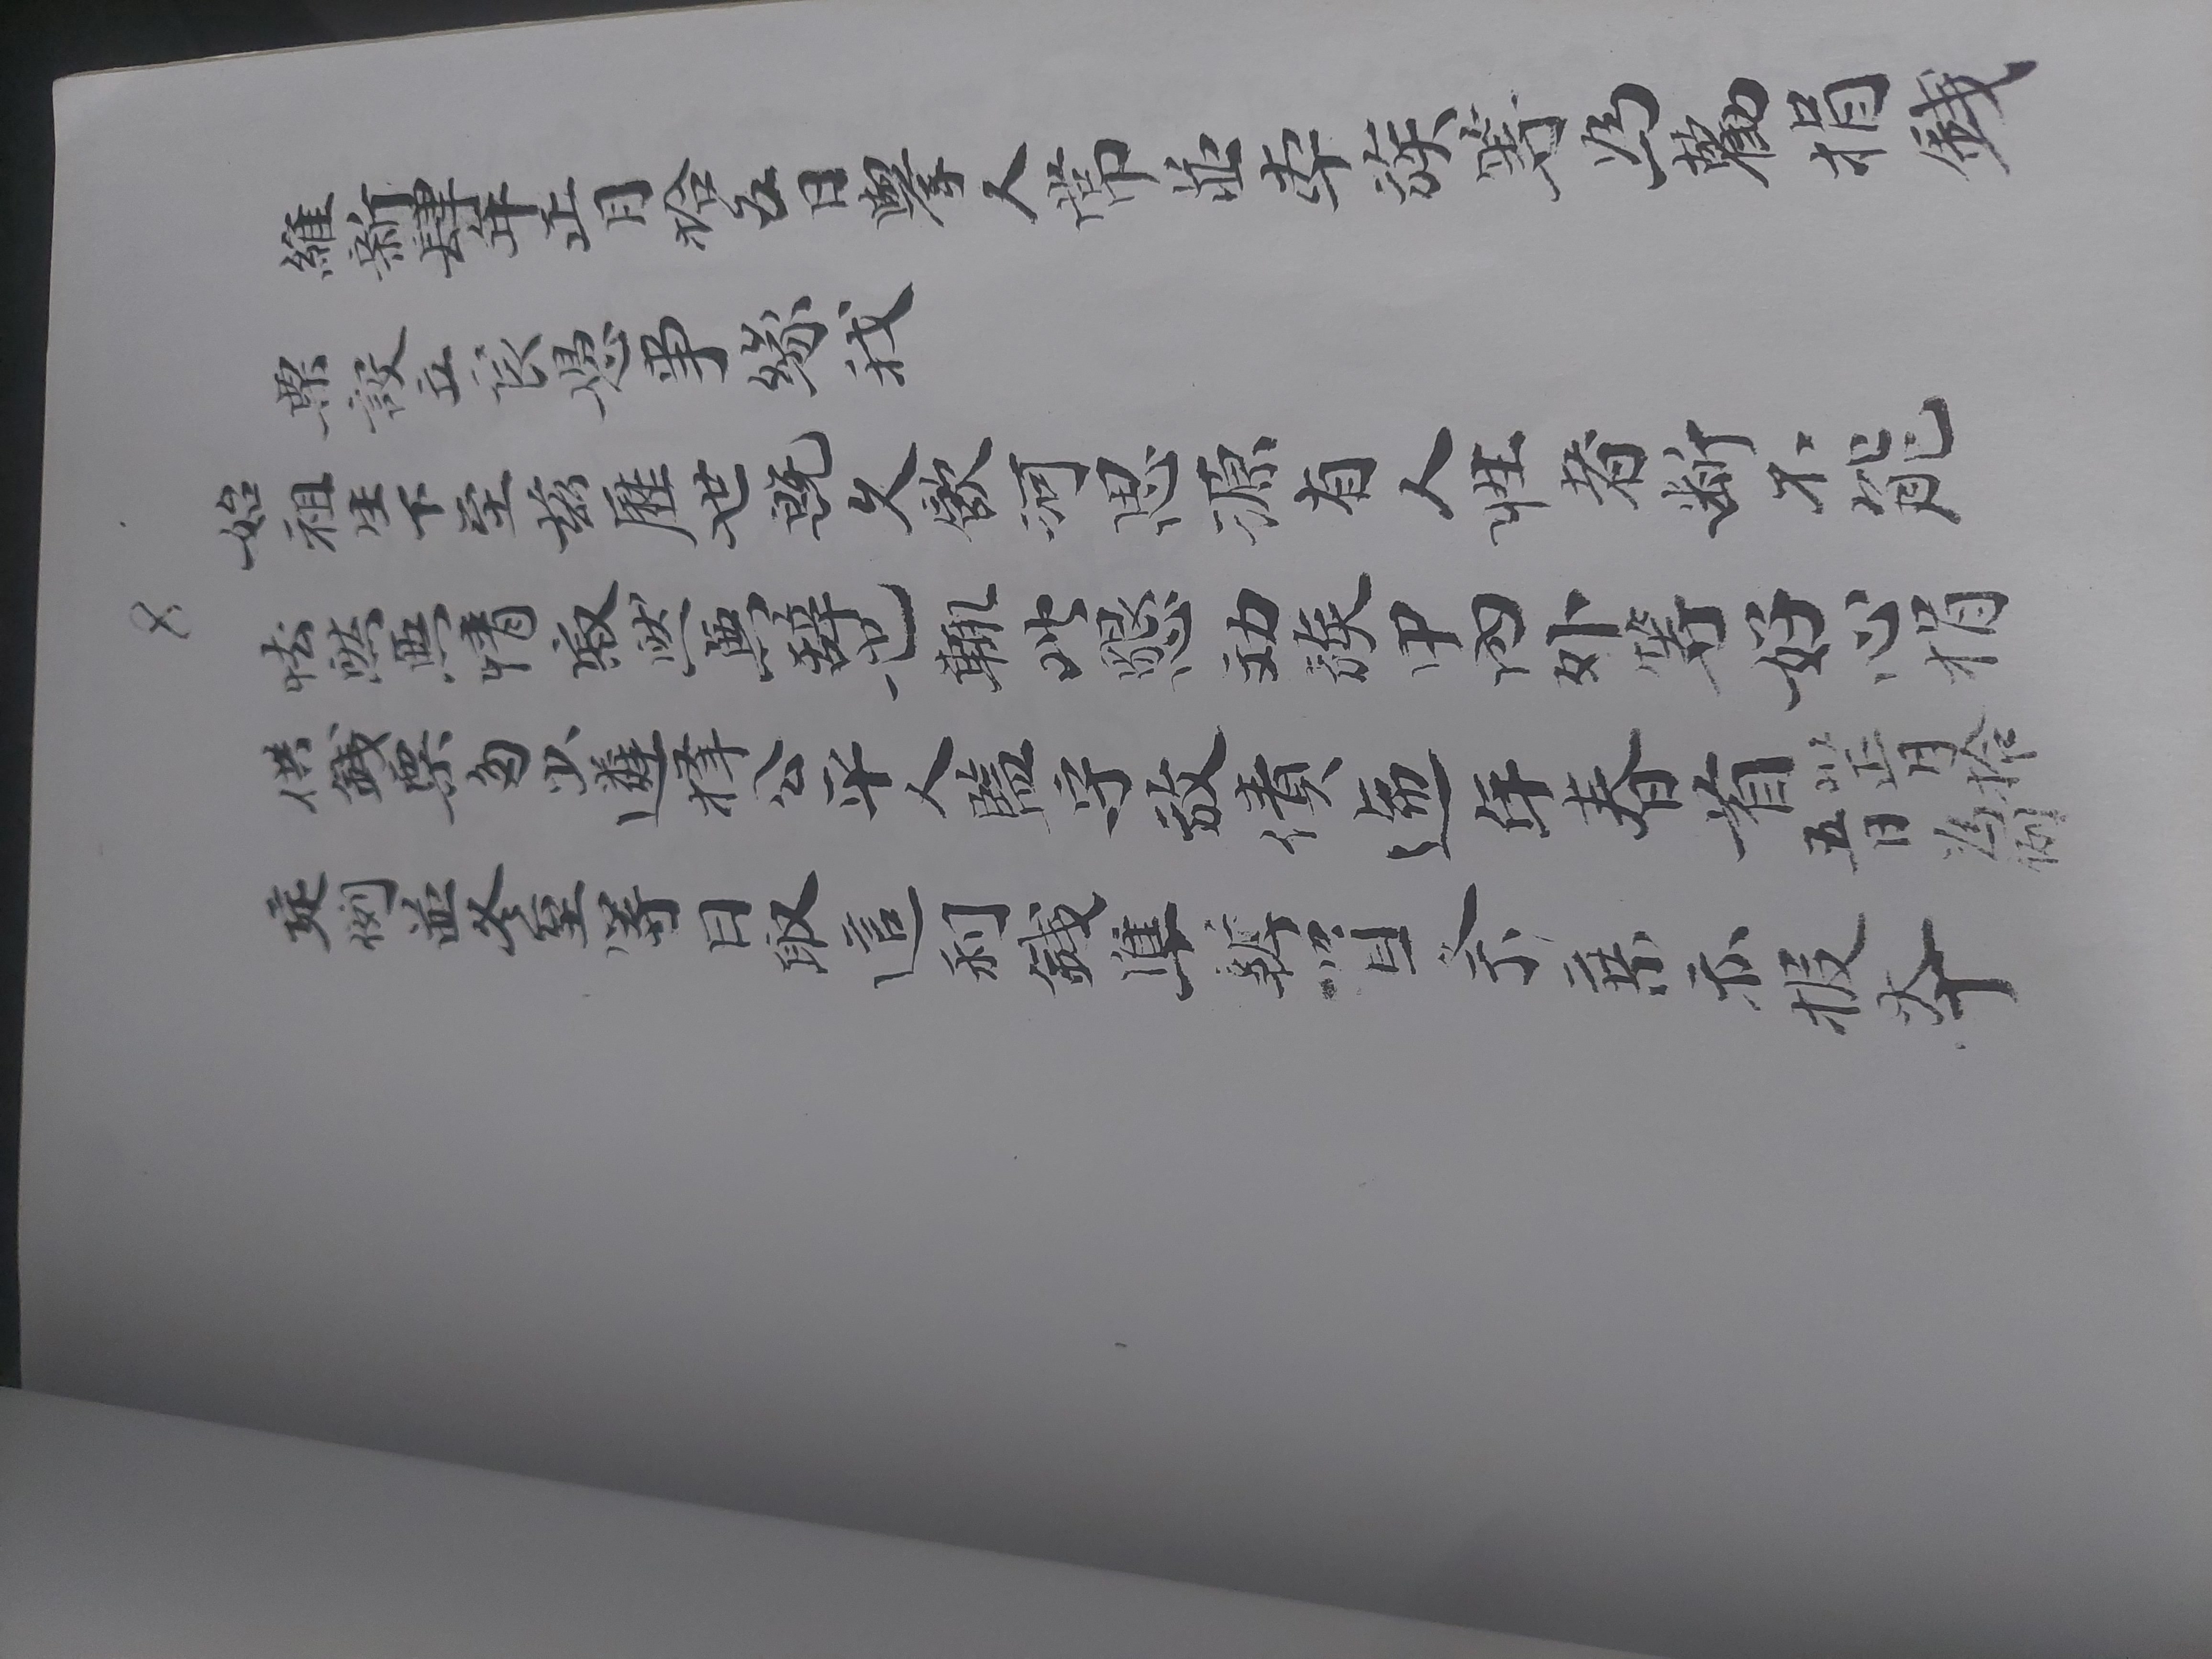 8
維新肆年正月拾五日舉人常並本族等為勸捐錢
票設立良憑事緣我
始祖生下至茲歷世既久飲河思源有人性者断不能
恝然無情寂然無辞也輒此懇効族甲内外等好心捐
供錢票多少遴擇公平人監守放債遞年春首以正月拾五日為例
定例並冬至等日取這利錢準辦買祭 示報本